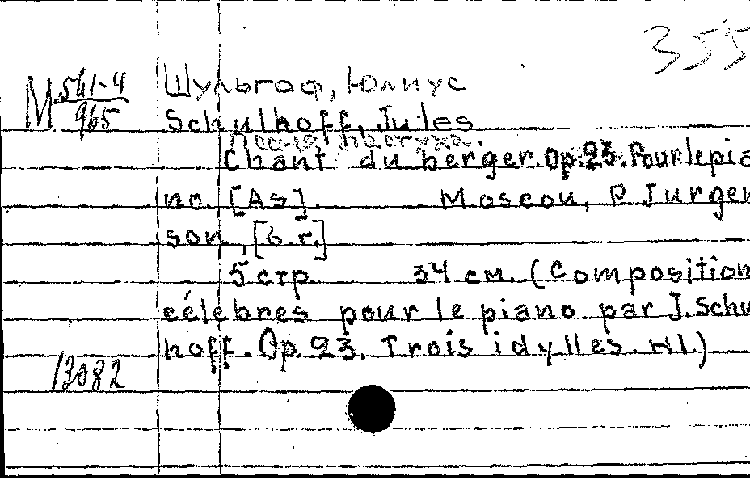 355
М 541-4/965
Шульгоф, Юлиус
Schulhoff, Jules
Песня пастуха.
Chant du berger. Op. 23. Pour le pia
no. [As]. Moscou, P. Jurgen
son, [б. г.]
5 стр 34 см. (Composition
célèbres pour le piano par J. Schu
hoff. Op. 23. Trois idylles. N1.)
13082